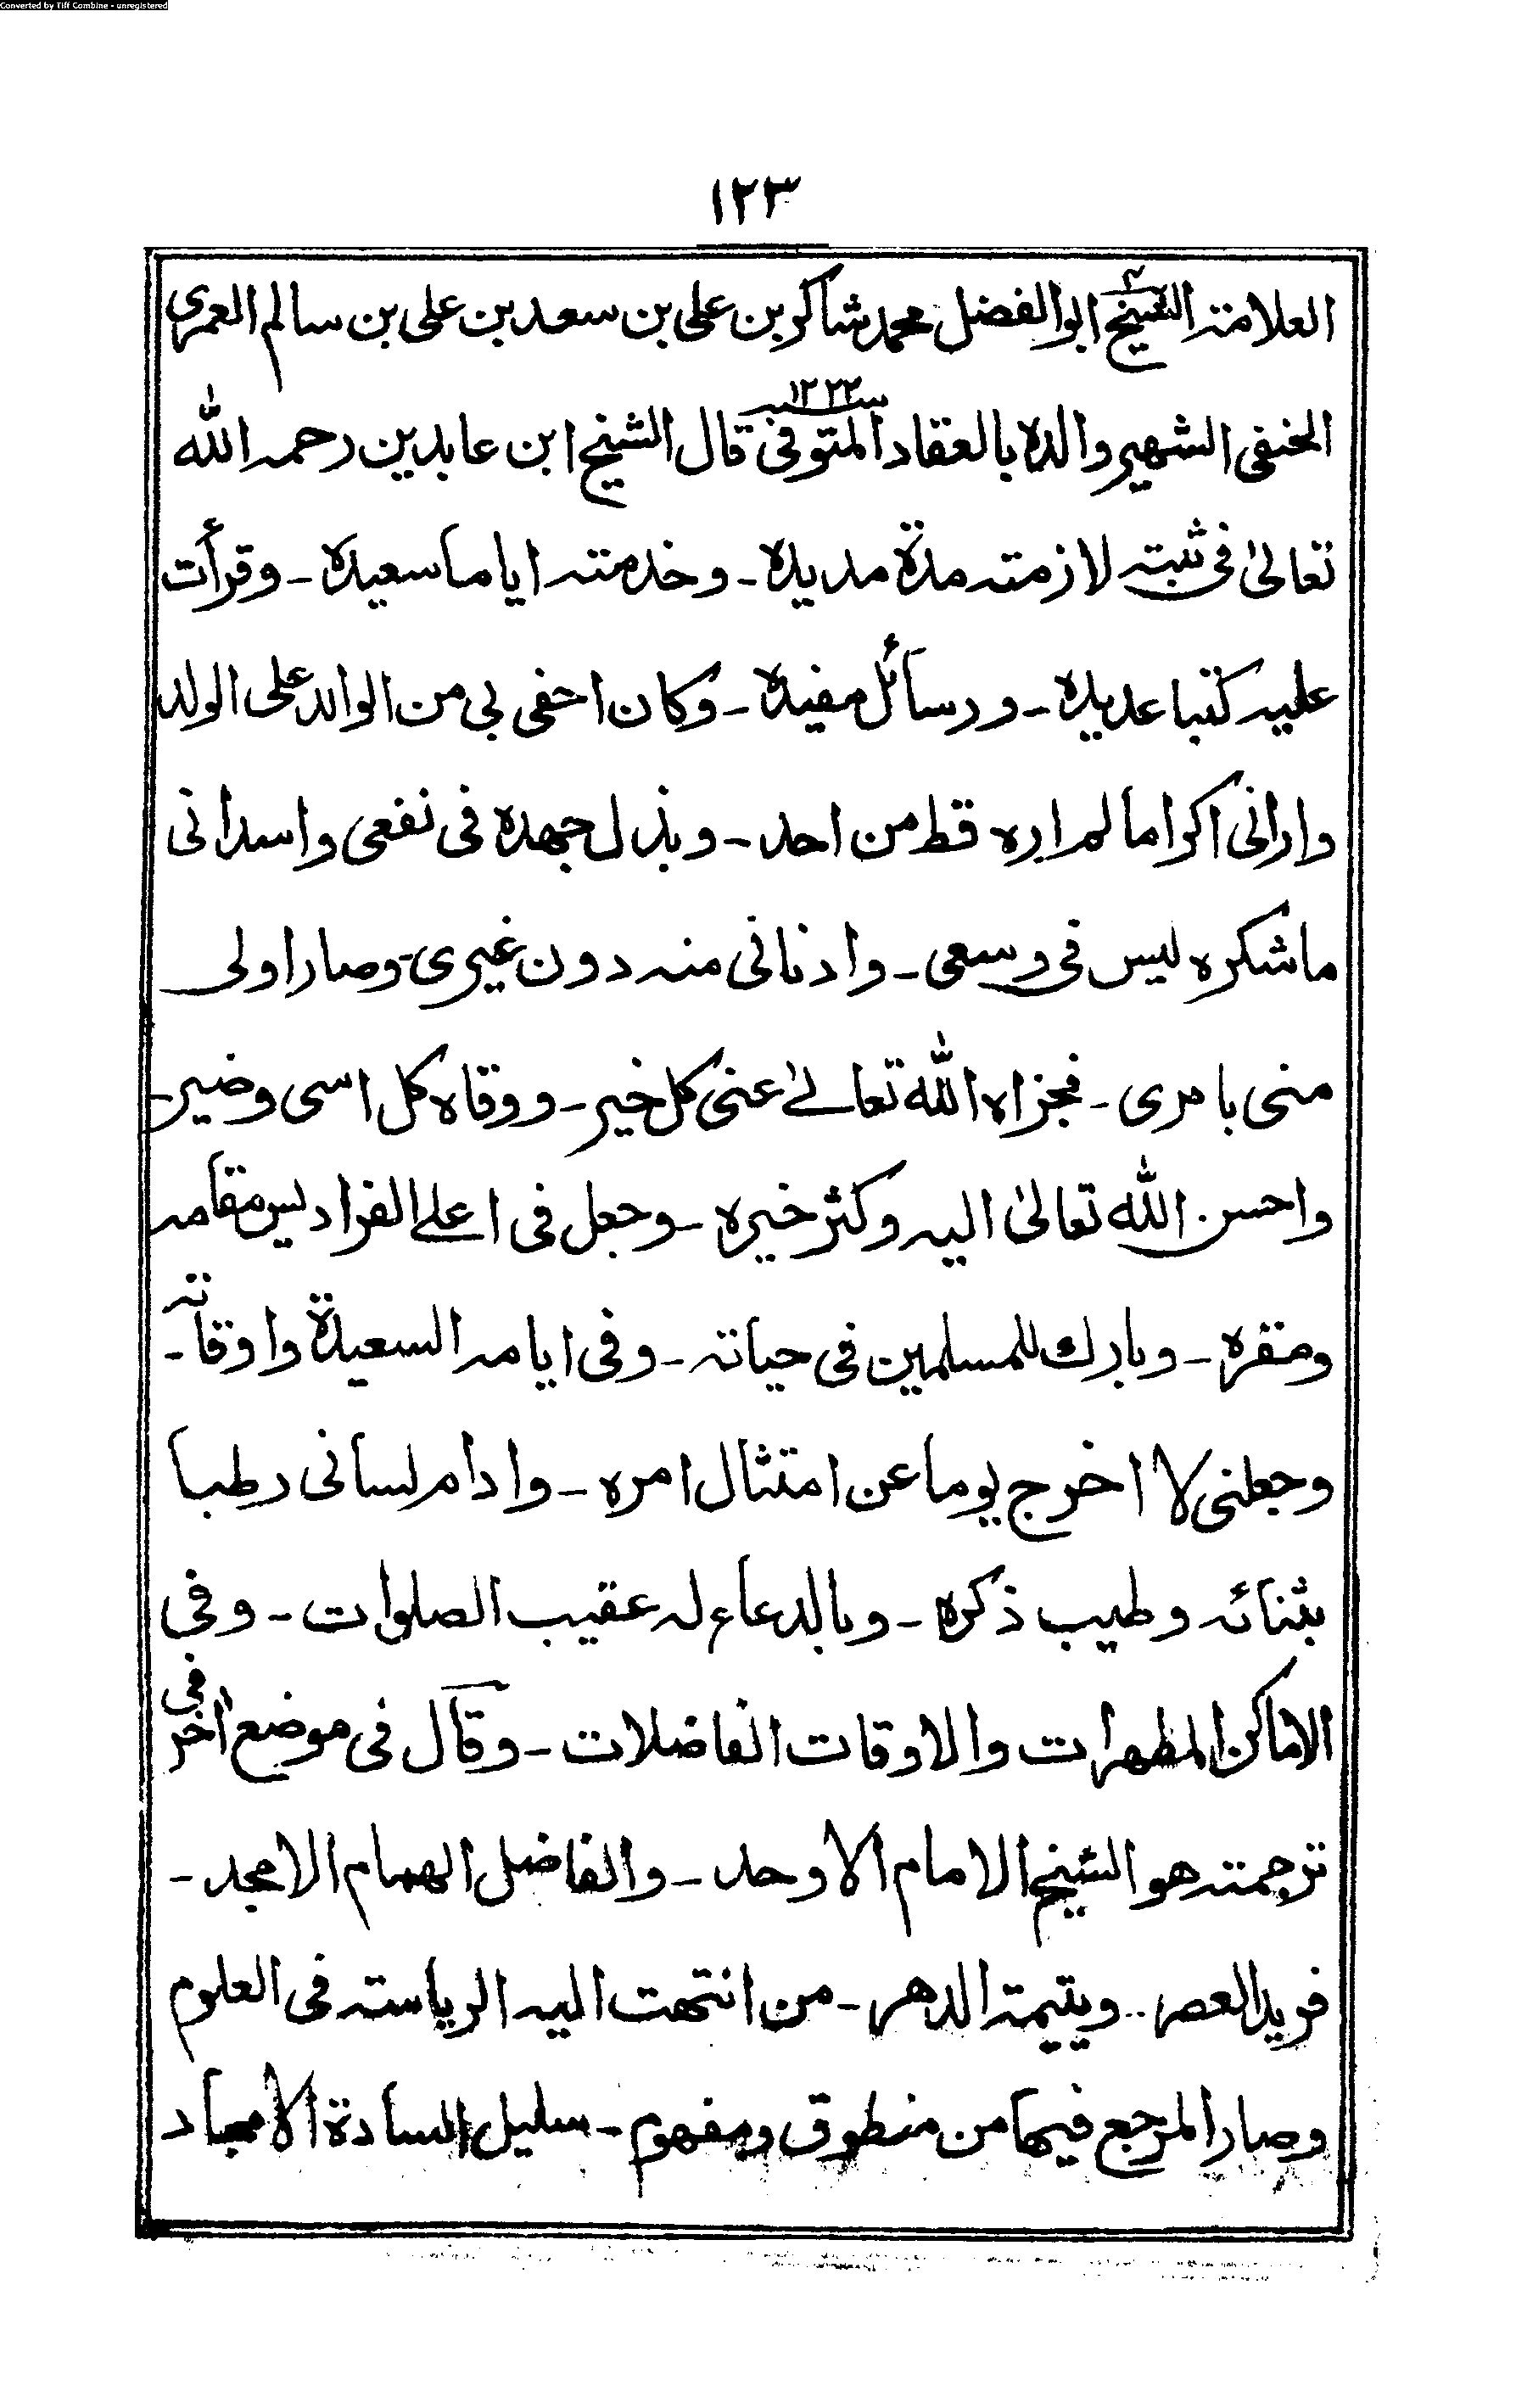 Converted by Tiff Combine - unregistered
١٢٣
العلامة الشيخ ابو الفضل محمد شاكر بن على بن سعد بن على بن سالم العمرى
الحنفى الشهير والده بالعقاد المتوفى سنة ١٢٢٢ قال الشيخ ابن عابدين رحمه الله
تعالىٰ فى ثبته لازمته مدة مديدة - وخدمته اياما سعيدة - وقرأت
عليه كتبا عديدة - ورسائل مفيدة - وكان احفى بى من الوالد على الولد
وارانى اكراما لم اره قط من احد - وبذل جهده فى نفعى واسدانى
ما شكره ليس فى وسعى - وادنانى منه دون غيرى - وصار اولى
منى بامرى - فجزاه الله تعالىٰ عنى كل خير - ووقاه كل اسى وضير -
واحسن الله تعالىٰ اليه وكثر خيره - وجعل فى اعلى الفراديس مقامه
ومقره - وبارك للمسلمين فى حياته - وفى ايامه السعيدة واوقاته -
وجعلنى لا اخرج يوما عن امتثال امره - وادام لسانى رطبا
بثنائه وطيب ذكره - وبالدعاء له عقيب الصلوات - وفى
الاماكن المطهرات والاوقات الفاضلات - وقال فى موضع اٰخر فى
ترجمته هو الشيخ الامام الاوحد - والفاضل الهمام الامجد -
فريد العصر - ويتيمة الدهر - من انتهت اليه الرياسة فى العلوم
وصار المرجع فيها من منطوق ومفهوم - سليل السادة الامجاد